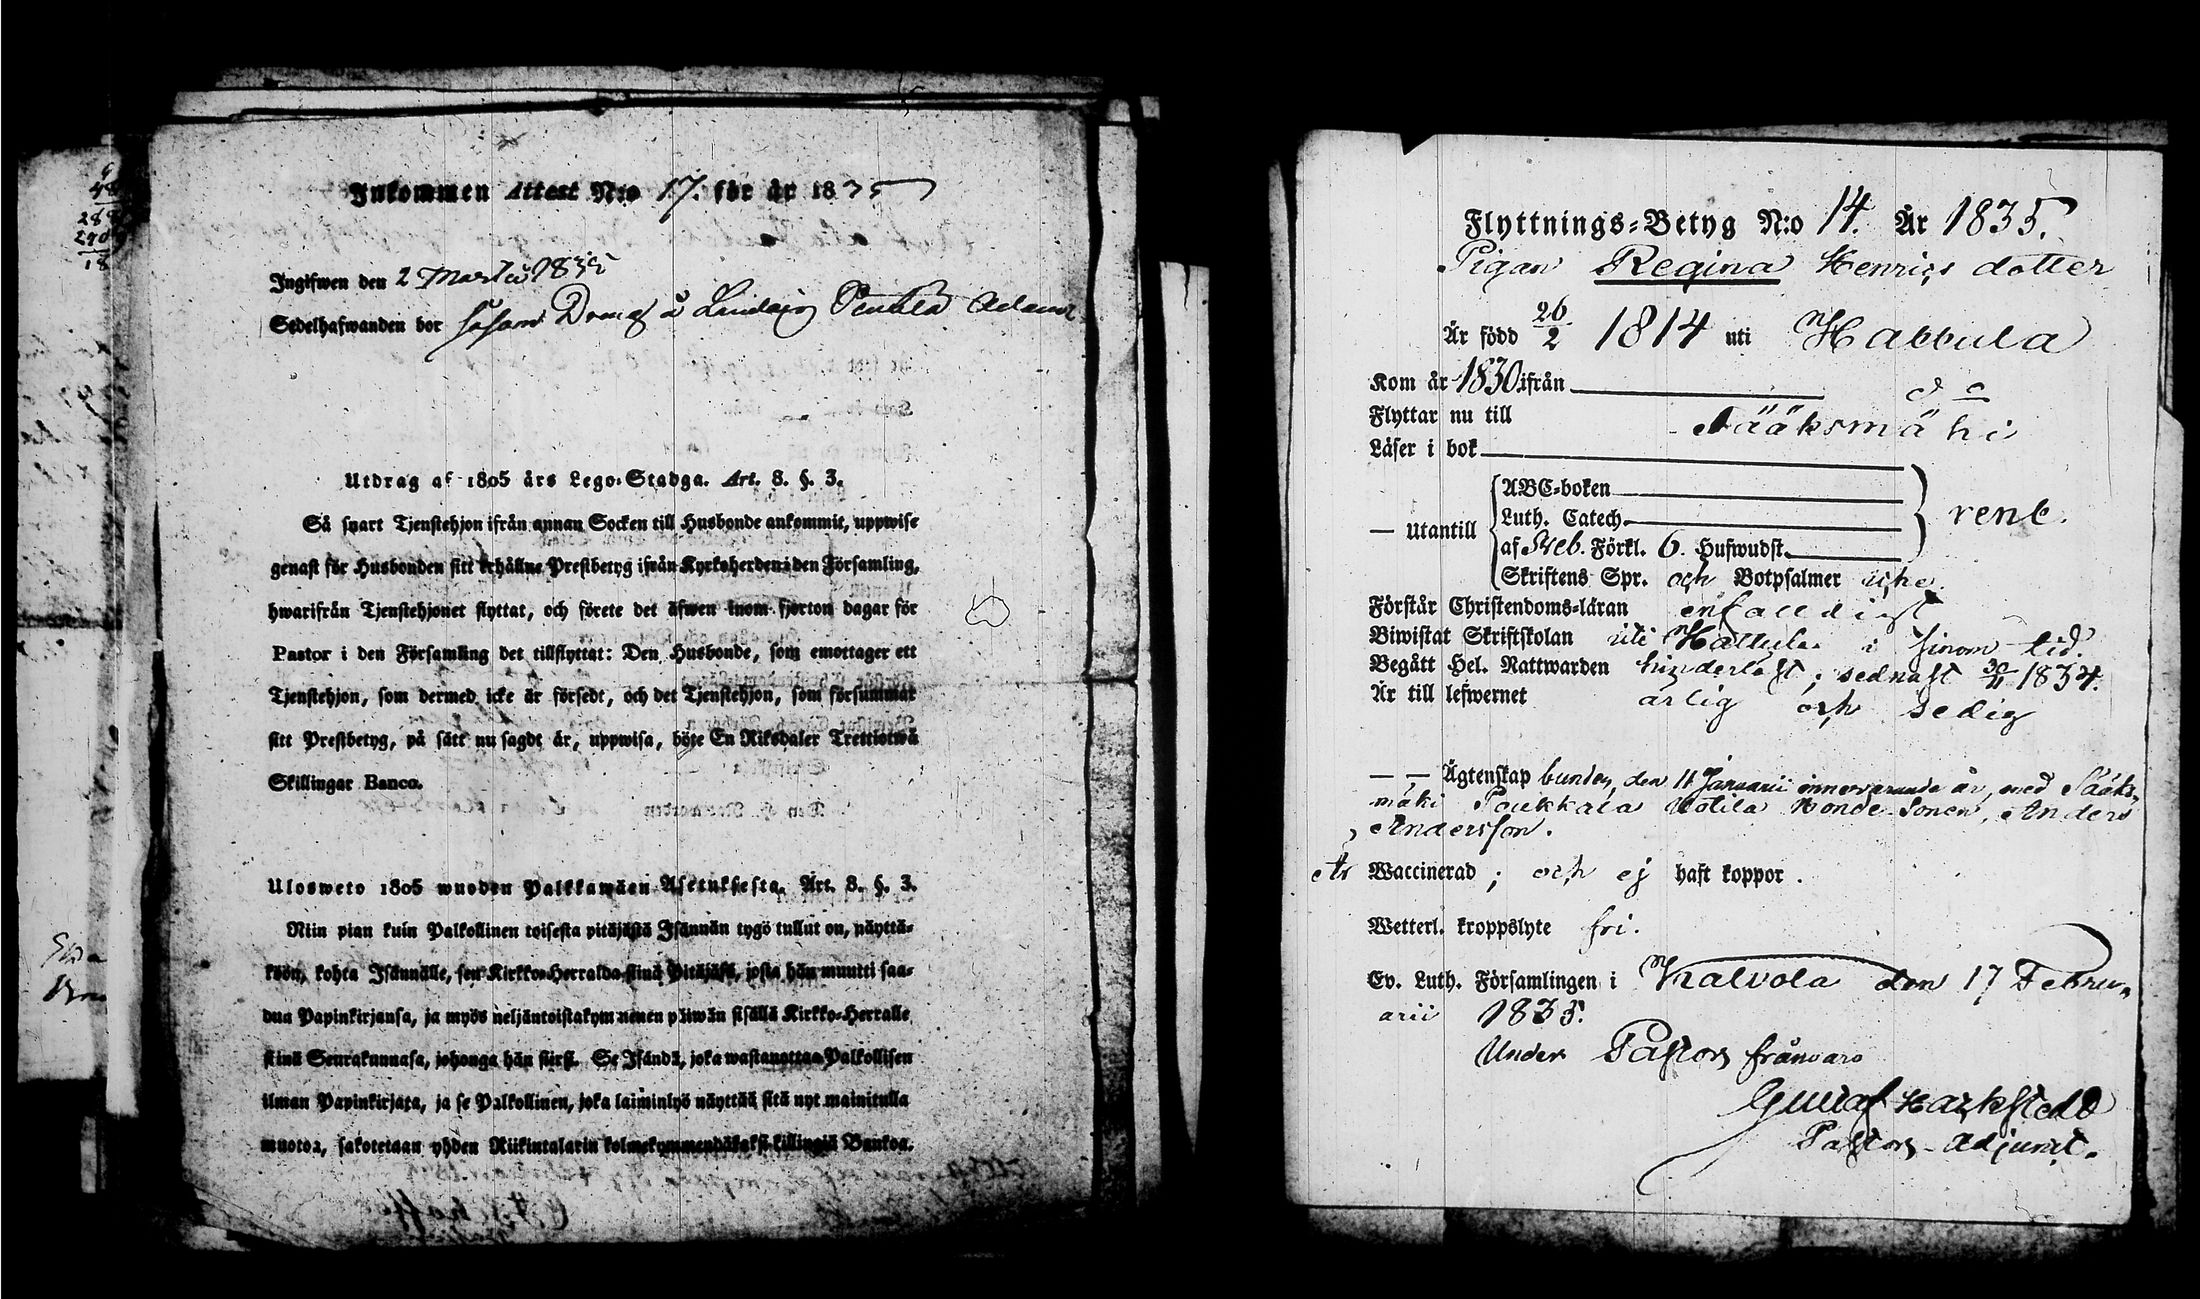 Inkommen Attest N:o 17. för år 1835
Ingifwen den 2 Martii 1835
Sedelhafwanden bor såsom
Utdrag af 1805 års Lego-Stadga. Art. 8. §. 3.
Så snart Tjenstehjon ifrån annan Socken till Husbonde ankommit, uppwise
genast för Husbonden sitt erhållne Prestbetyg ifrån Kyrkoherden i den Församling,
hwarifrån Tjenstehjonet flyttat, och förete det äfwen inom fjorton dagar för
Pastor i den Församling det tillflyttat: Den Husbonde, som emottager ett
Tjenstehjon, som dermed icke är försedt, och det Tjenstehjon, som försummar
sitt Prestbetyg, på sätt nu sagdt är, uppwisa, böte En Riksdaler Trettiotwå
Skillingar Banco.
Ulosweto 1805 wuoden Palkkawäen Asetuksesta. Art. 8. §. 3.
Niin pian kuin Palkollinen toisesta pitäjästä Isännän tygö tullut on, näyttä-
köön, kohta Isännälle, sen Kirkko-Herralda siinä Pitäjäsä, josta hän muutti saa-
dun Papinkirjansa, ja myös neljäntoistakymmenen päiwän sisällä Kirkko-Herralle
siinä Seurakunnasa, johonga hän siirsi. Se Isändä, joka wastanottaa Palkollisen
ilman Papinkirjata, ja se Palkollinen, joka laiminlyö näyttää sitä nyt mainitulla
muotoa, sakotetaan yhden Riikintalarin kolmekymmendäkaksi killingiä Bankoa.
Flyttnings-Betyg N:o 14. År 1835.
Pigan Regina Henrics dotter
Är född 26/2 1814 uti Hattula
Kom år 1830 ifrån d o
Flyttar nu till Sääksmäki
Läser i bok
— Utantill
ABC-boken
Luth. Catech.
af Sveb. Förkl. 6. Hufwudst.
rent.
Skriftens Spr. och Botpsalmer icke
Förstår Christendoms-läran enfaldigt
Biwistat Skriftskolan uti Hattula i sinom tid.
Begått Hel. Nattwarden hinderlöst, sednast 30/11 1834.
Är till lefwernet ärlig och sedig
— — Ägtenskap bunden, den 11 Januarii innevarande år, med Sääks-
mäki Paukkala Uotila Bonde Sonen, Anders
Andersson.
Är Waccinerad ; och ej haft koppor .
Wetterl. kroppslyte fri.
Ev. Luth. Församlingen i Kalvola den 17 Febru-
arii 1835.
Under Pastors frånvaro
Gustaf
Pastors-Adjunct.